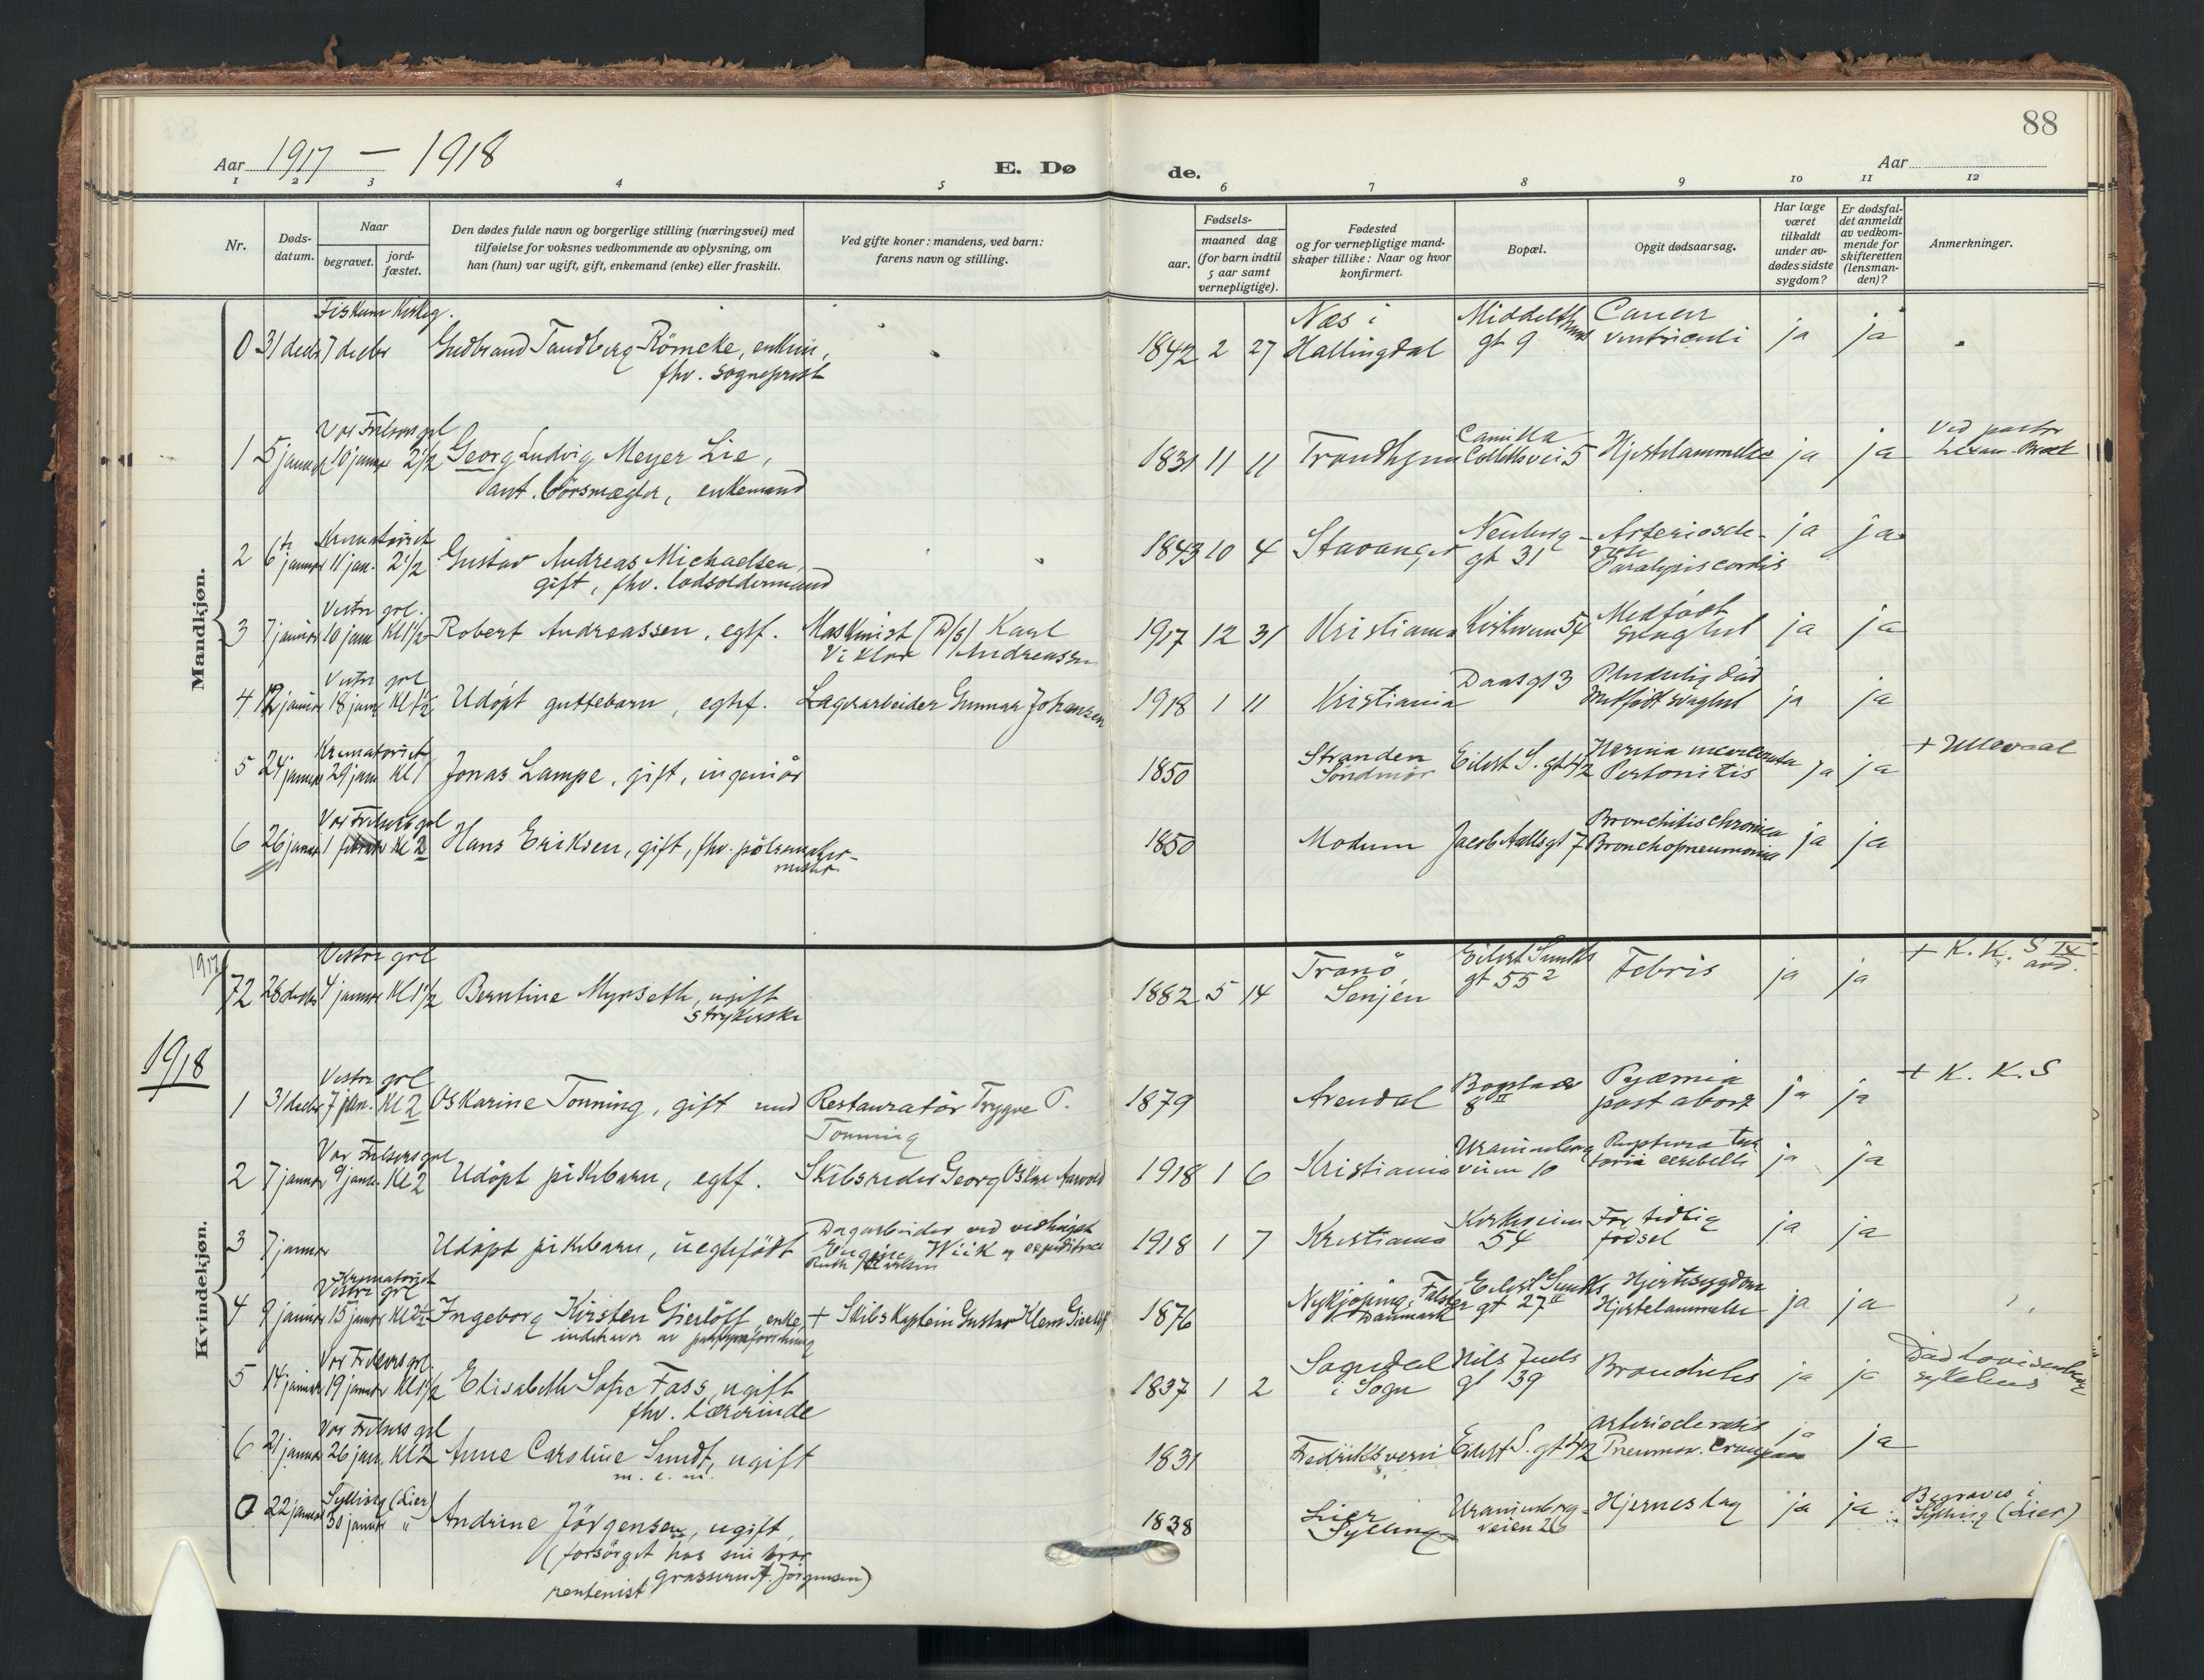 88
Aar 1917 — 1918
E. Dø
de.
Aar
1 2 3 4 5 6 7 8 9 10 11 12
Nr.
Døds-
datum.
Naar
begravet.
jord-
fæstet.
Den dødes fulde navn og borgerlige stilling (næringsvei) med
tilføielse for voksnes vedkommende av oplysning, om
han (hun) var ugift, gift, enkemand (enke) eller fraskilt.
Ved gifte koner: mandens, ved barn:
farens navn og stilling.
Fødsels-
aar.
maaned dag
(for barn indtil
5 aar samt
vernepligtige).
Fødested
og for vernepligtige mand-
skaper tillike: Naar og hvor
konfirmert.
Bopæl.
Opgit dødsaarsag.
Har læge
været
tilkaldt
under av-
dødes sidste
sygdom?
Er dødsfal-
det anmeldt
av vedkom-
mende for
skifteretten
(lensman-
den)?
Anmerkninger.
Mandkjøn.
Fiskum Kirkeg.
0 31 decbr 7 decbr Gudbrand Tandberg Römcke, enkem,
fhv. sogneprest
1842 2 27 Næs i
Hallingdal
Middelthuns
gt 9
Cancer
ventriculi
ja ja
Vor Frelsers grl
1 5 januar 10 januar 2 1/2 Georg Ludvig Meyer Lie,
aut. börsmægler, enkemand
1831 11 11 Trondhjem
Camilla
Collettsvei 5
Hjertelammelse ja ja
Ved pastor
Krematoriet
2 6te januar 11 jan. 2 1/2 Gustav Andreas Michaelsen,
gift, fhv. lodsoldermand
1843 10 4 Stavanger
Neuberg-
gt 31
Arterioscle-
rose
Paralysis cordis
ja ja
Vestre grl.
3 7 januar 10 jan Kl 1 1/2 Robert Andreassen, egtf. Maskinist (D/S) Karl
Viktor Andreassen
1917 12 31 Kristiania Kirkeveien 54 Medfödt
svaghet
ja ja
Vestre grl
4 12 januar 18 jan Kl 1 1/2 Udöpt guttebarn, egtf. Lagerarbeider Gunnar Johansen
1918 1 11 Kristiania Daasgt 3 Pludselig död
Medfödt svaghet ja ja
Krematoriet
5 24 januar 29 jan Kl 1 Jonas Lampe, gift, ingeniör
1850 Stranden
Söndmör
Eilert S. gt 42 Hernia incarcerata
Peritonitis ja ja
+ Ullevaal
Vor Frelsers grl
6 26 januar 1 februar Kl 2 Hans Eriksen, gift, fhv. pölsemaker-
mester.
1850 Modum Jacob Aallsgt 7 Bronchitis chronica
Bronchopneumonia ja ja
Kvindekjøn.
1917
Vestre grl
72 28 decbr 4 januar Kl 1 1/2 Berntine Myrseth, ugift
strykerske
1882 5 14 Tranö
Senjen
Eilert Sundts
gt 55 2
Febris ja ja
+ K. K. S IX
avd.
1918
Vestre grl
1 31 decbr 7 jan. Kl 2 Oskarine Tonning, gift med Restauratör Trygve T.
Tonning
1879 Arendal
8 II
Pyæmia
post abort
ja ja
+ K. K. S
Vor Frelsers grl
2 7 januar 9 januar Kl 2 Udöpt pikebarn, egtf. Skibsreder Georg Oskar Aarvold
1918 1 6 Kristiania Uranienborg
veien 10
Ruptura ten
toria cerebelli
ja ja
3 7 januar Udöpt pikebarn, uegtefödt Dagarbeider ved
Eugen Wiik og
Ruth Karlsen
1918 1 7 Kristiania Kirkeveien
54
For tidlig
födsel
ja ja
Krematoriet
Vestre grl
4 9 januar 15 januar Kl 2 1/2 Ingeborg Kirsten Gierlöff, enke, + Skibskaptein Gustav Klem Gierlöff
1876 Nykjöping, Falster
Danmark
Eilert Sundts
gt 27 II
Hjertesygdom
Hjertelammelse ja ja
Vor Frelsers grl.
5 14 januar 19 januar Kl 1 1/2 Elisabeth Sofie Fass, ugift
fhv. Lærerinde
1837 1 2 Sogndal
i Sogn
Nils Juels
gt 39
Bronchitis ja ja
Död Lovisenberg
sykehus
Vor Frelsers grl
6 21 januar 26 jan. Kl 2 Anne Caroline Sundt, ugift
m. e. m.
1831 Fredriksvern Eilert S. gt 42 arteriosclerosis
Pneumon. crouposa
ja ja
Sylling (Lier)
0 22 januar 30 januar " Andrine Jörgensen, ugift,
(forsörget hos sin bror
rentenist A. Jörgensen)
1838 Lier
Sylling
Uranienborg-
veien 26
Hjerneslag ja ja
Begraves i
Sylling (Lier)